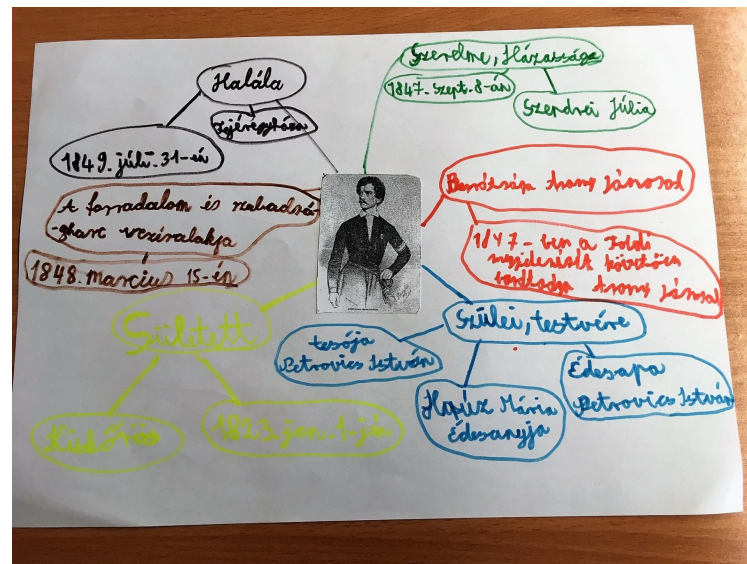 Halála
Fejéregyháza
1849. júli. 31-én
Szerelme, Házassága
1847. Szept. 8-án
Szendrei Júlia
A forradalom és szabadsá-
gharc vezéralakja
1848. Március 15-én
Barátsága Arany Jánosal
1847-ben a Toldi
megjelenését követőcs
barátsága Arany Jánosal
Született:
Kiskőrös
1823. jan. 1-jén
Szülei, testvére
tesója
Petrovics István
Hrúz Mária
Édesanyja
Édesapa
Petrovics István